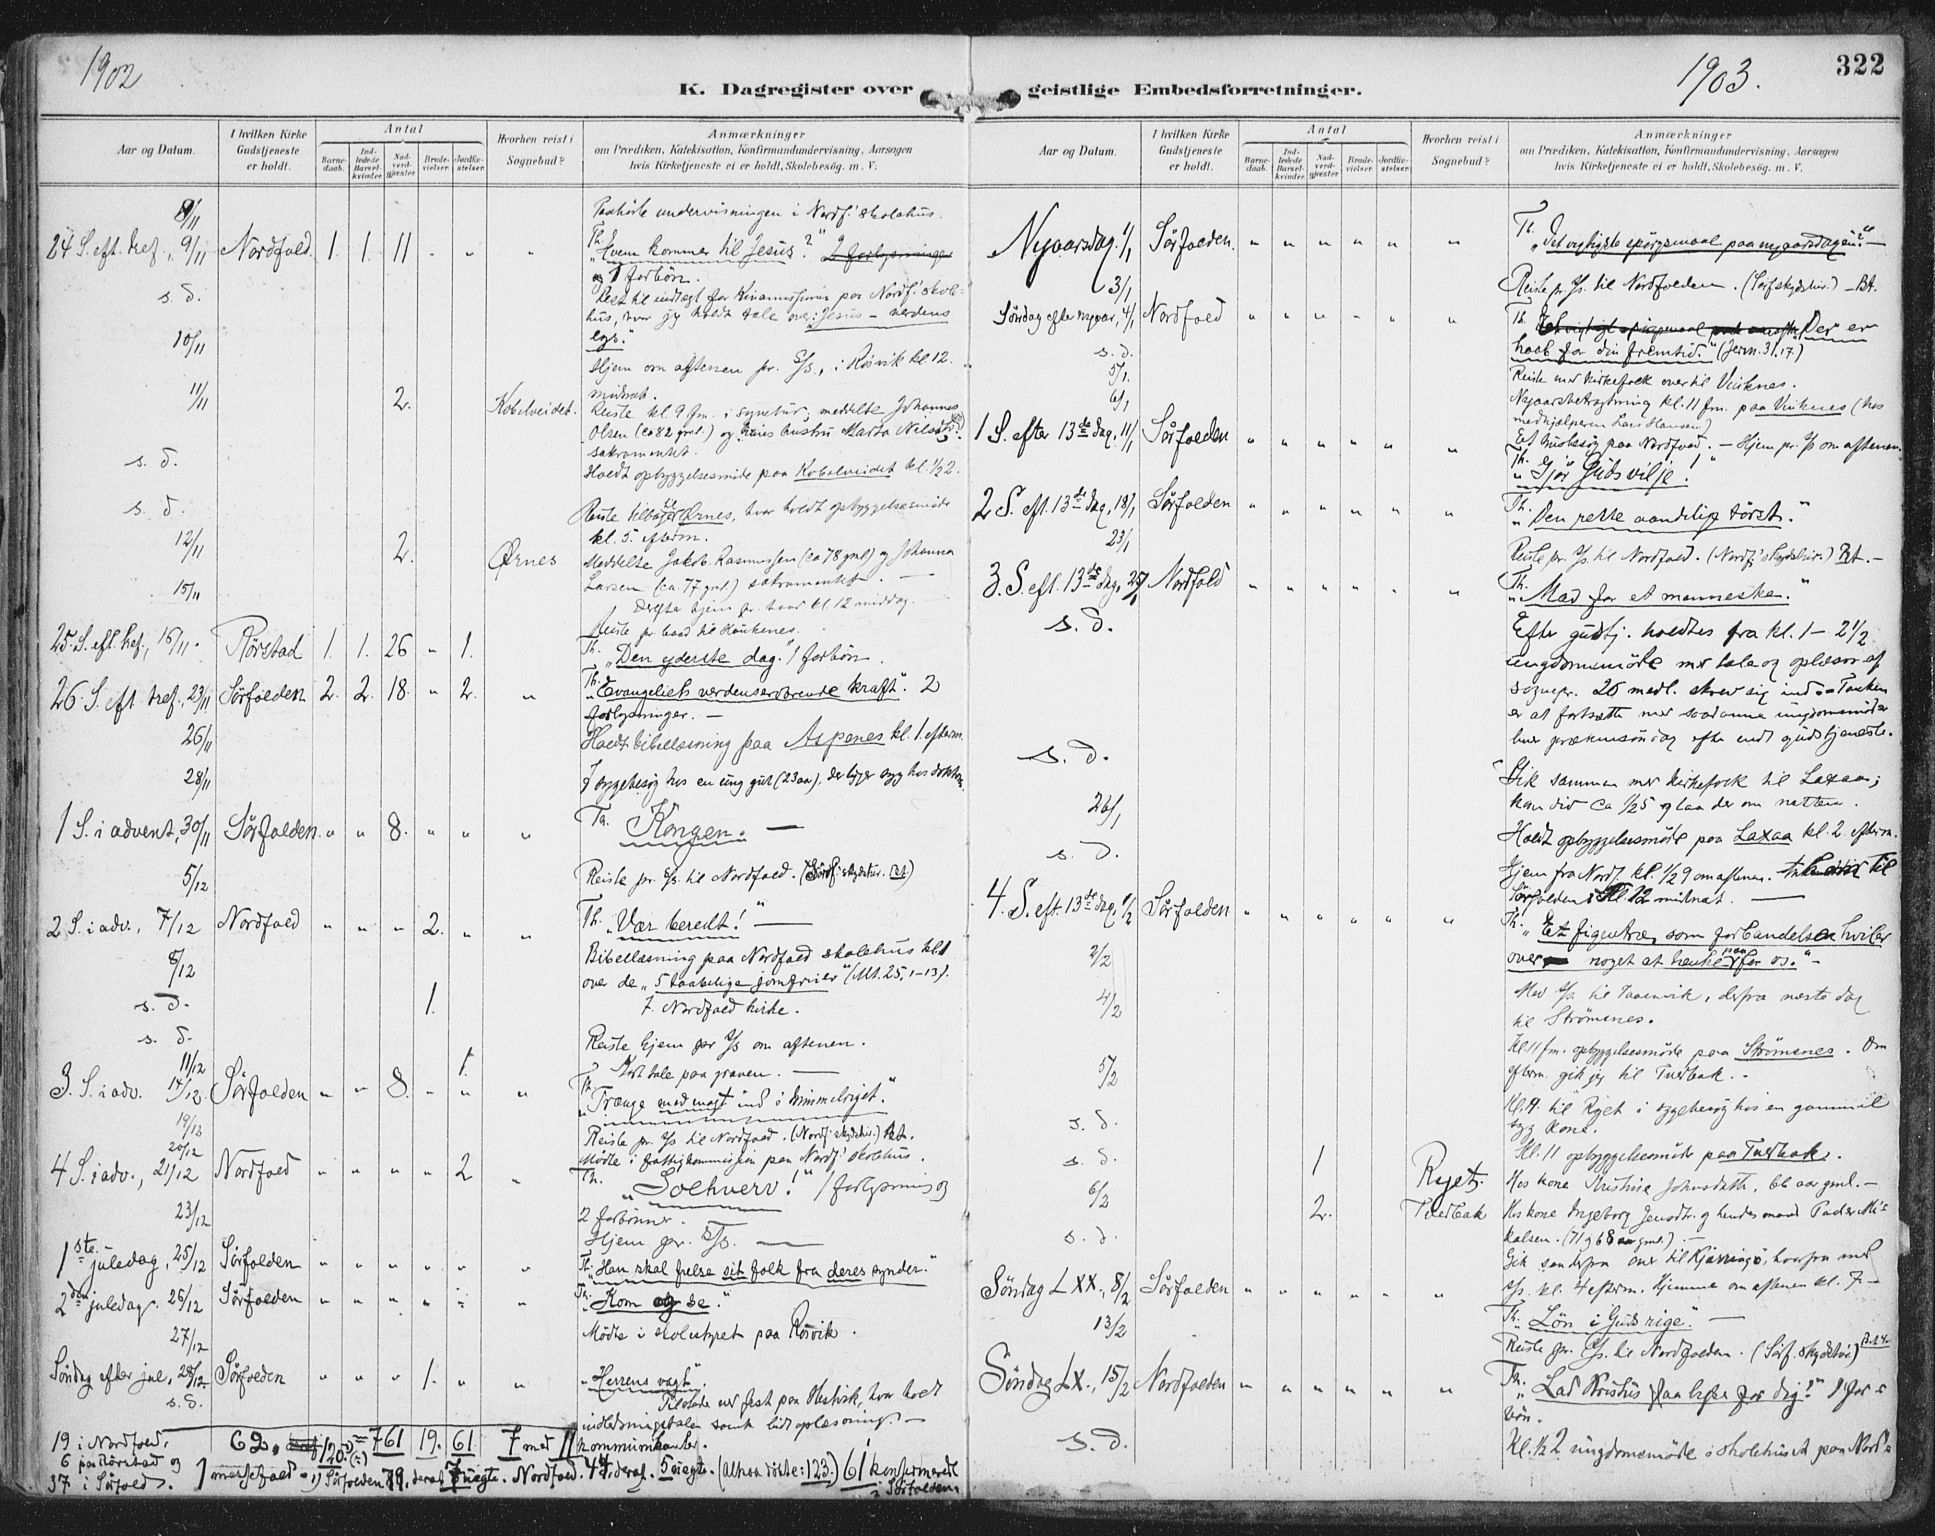 1902
K. Dagregister over
Aar og Datum.
I hvilken Kirke Gudstjeneste er holdt.
Antal
Barnedaab.
Indledede Barselkvinder.
Nadverdgjæster.
Brudevielser.
Jordfæstelser.
Hvorhen reist i Sognebud?
Anmærkninger
om Prædiken, Katekisation, Konfirmandundervisning, Aarsagen
hvis Kirketjeneste ei er holdt, Skolebesög. m. V.
8/11 Paahörte undervisningen i Nordf. skolehus.
24 S. eft. tref., 9/11 Nordfold. 1. 1. 11 Th. "Hvem kommer til Jesus?" 2 forlysninger
og 1 forbön.
s. d. Fest til indtægt for Kinamissionen paa Nordf. skole-
hus, hvor jeg holdt tale over: "Jesus – verdens
lys."
10/11 Hjem om aftenen pr. S/S, i Rösvik kl. 12.
midnat.
11/11 2. Kobelveidet. Reiste kl. 9 fm. i sognebud; meddelte Johannes
Olsen (ca 82 gml.) og hans hustru Marta Nilsdtr.
sakramentet.
s. d. Holdt opbyggelsesmöde paa Kobelveidet kl. 1/2 2.
s. d. Reiste tilbage til Ørnes, hvor holdt opbyggelsesmöde
kl. 5 efterm.
12/11 2. Ørnes Meddelte Jakob Rasmussen (ca 78 gml) og Johanna
Larsen (ca. 77 gml.) sakramentet. —
Derefter hjem pr. baad kl. 12 middag.
15/11 Reiste pr. baad til
25. S. eft. tref., 16/11. Rörstad 1. 1. 26 1. Th. "Den yderste dag." 1 forbön.
26. S. eft. tref., 23/11 Sörfolden 2. 2. 18. 2. Th. "Evangeliets verdenserobrende kraft". 2
forlysninger. —
26/11 Holdt bibellæsning paa Aspenes kl. 1. efterm.
28/11 I sygebesög hos en ung gut (23 aar). der ligger syg hos doktoren.
1 S. i advent, 30/11 Sörfolden. 8. Th. Kongen. —
5/12 Reiste pr. S/S. til Nordfold. (Sörf. skydsstir. Bt.)
2 S. i adv., 7/12 Nordfold 2. Th. "Vær beredt!" —
8/12 Bibellæsning paa Nordfold skolehus kl. 1
over de "5 taabelige jomfruer" (Mt. 25, 1–13).
s. d. 1. I. Nordfold kirke.
s. d. Reiste hjem pr S/S om aftenen.
11/12 1. Kort tale paa graven. —
3. S. i adv. 14/12. Sörfolden 8. Th. "Trænge med magt ind i himmelriget."
19/12 Reiste pr. S/S til Nordfold. (Nordf. skydsstir.) Bt.
20/12 Mödte i fattigkommission paa Nordf. skolehus.
4 S. i adv., 21/12 Nordfold 2 Th. "Solhverv!" 1 forlysning og
2 forbönner.
23/12 Hjem pr. S/S. —
1ste juledag, 25/12 Sörfolden Th. "Han skal frelse sit folk fra deres synder."
2den juledag. 26/12 Sörfolden Th. "Kom og se."
27/12 Mödte i skolestyret paa Rösvik.
Söndag efter jul, 28/12. Sörfolden 1. "Herrens vagt".
s. d. Tilstede ved fest paa hvor holdt
indledningstalen samt lidt oplæsning. —
19 i Nordfold, 62. 120. = 761 19. 61 7 med 11 kommunikanter.
6 paa Rörstad og
37 i Sörfold. 1 messefald – i Sörfolden 79. deraf 7 uegte. Nordfold. 44. deraf 5 uegte. (altsaa döbte: 123.) 61 konfirmerede
i Sörfolden.
1903.
322
geistlige Embedsforretninger.
Aar og Datum.
I hvilken Kirke Gudstjeneste er holdt.
Antal
Barnedaab.
Indledede Barselkvinder.
Nadverdgjæster.
Brudevielser.
Jordfæstelser.
Hvorhen reist i Sognebud?
Anmærkninger
om Prædiken, Katekisation, Konfirmandundervisning, Aarsagen
hvis Kirketjeneste ei er holdt, Skolebesög. m. V.
Nyaarsdag. 1/1 Sörfolden. Th. "Det vigtigste spörgsmaal paa nyaarsdagen?" —
3/1 Reiste pr. S/S. til Nordfolden. (Sörf. skydsstir.) – Bt.
Söndag efter nyaar, 4/1 Nordfold Th. Der er
haab for din fremtid." (Jerm. 31, 17.)
s. d. Reiste med kirkefolk over til Vinknes.
5/1. Nyaarsbetragtning kl. 11 fm. paa Vinknes (hos
medhjælperen Lars Hansen)
6/1 Et husbesög paa Nordfold. – Hjem pr. S/S om aftenen.
1 S. efter 13de dag, 11/1 Sörfolden Th. "Gjör Guds vilje!"
2 S. eft. 13de dag, 18/1 Sörfolden Th. "Den rette aandelige törst."
23/1 Reiste pr. S/S til Nordfold. (Nordf.s skydsstir.) Bt. —
3. S. eft. 13de dag, 25/1 Nordfold Th. "Mad for et menneske."
s. d. Efter gudstj. holdtes fra kl. 1 – 2 1/2
ungdomsmöde med tale og oplæsn. af
sognepr. 26 medl. skrev sig ind. – Tanken
er at fortsætte med saadanne ungdomsmöder
hver prækensöndag efter endt gudstjeneste.
s. d. Gik sammen med kirkefolk til Laxaa;
kom did ca 1/2 5 og laa der om natten.
26/1 Holdt opbyggelsesmöde paa Laxaa kl. 2. efterm.
s. d. Hjem fra Nordf. kl. 1/2 9 om aftenen. til
Sörfolden kl. 12 midnat. —
4. S. eft. 13de dag, 1/2 Sörfolden Th. "Et figentræ, som forbandelsen hviler
over – noget at tænke paa for os." –
2/2 Med S/S. til derfra næste dag
til Strömsnes.
4/2 Kl. 11 fm. opbyggelsesmöde paa Strömsnes. Om
efterm. gik jeg til Tverbak. –
5/2 Kl. 4. til Ryet i sygebesög hos en gammel
syg kone.
s. d. Kl. 11 opbyggelsesmöde paa Tverbak.
s. d. 1 Ryet. Hos kone Kristine Johnsdatter, 66 aar gml. —
6/2 2. Tverbak Hos kone Ingeborg Jensdtr. og hendes mand Peder Mi-
kalsen. (71 og 68 aar gml.). —
s. d. Gik saa derfra over til Kjerringö, hvorfra med
S/S. kl. 4 efterm. Hjemme om aftenen kl. 7. —
Söndag LXX., 8/2 Sörfolden Th. "Lön i Guds rige." —
13/2 Reiste pr. S/S. til Nordfolden. (Sörf. skydsstir)
Söndag LX., 15/2 Nordfolden Th. "Lad Kristus faa for dig!" 1 for-
bön.
s. d. Kl. 1/2 2 ungdomsmöde i skolehuset paa Nord-